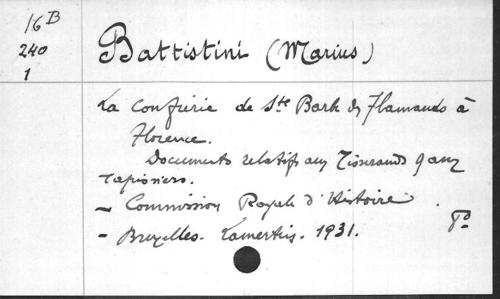 16 B
240
1
Battistini (Marius)
La Confrérie de Ste Barbe des Flamands à
Florence.
Documents relatifs aux Tisserands & aux
Tapissiers.
- Commission Royale d'Histoire.
- Bruxelles. Lamertin. 1931. 8°